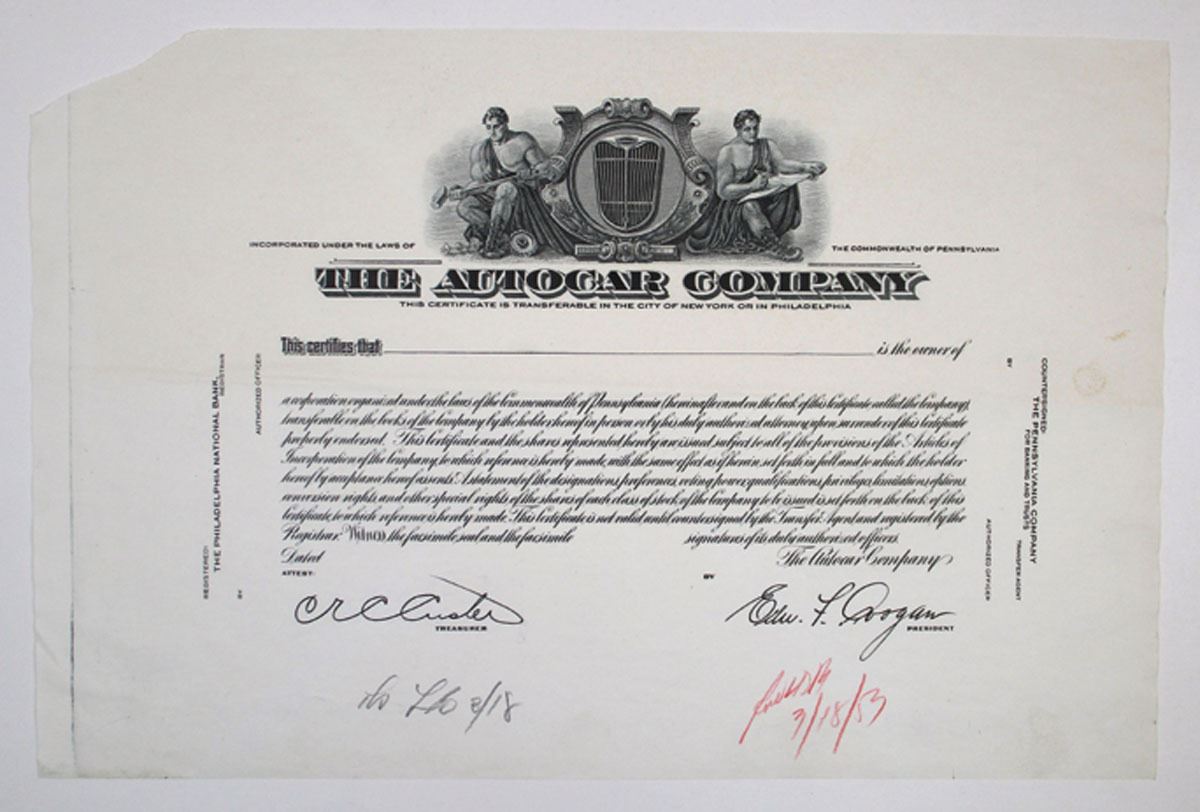 INCORPORATED UNDER THE LAWS OF
THE COMMONWEALTH OF PENNSYLVANIA
THE AUTOCAR COMPANY
THIS CERTIFICATE IS TRANSFERABLE IN THE CITY OF NEW YORK OR IN PHILADELPHIA
This certifies that is the owner of
a corporation organized under the laws of the Commonwealth of Pennsylvania (hereinafter and on the back of this Certificate called the Company),
transferable on the books of the Company by the holder hereof in person or by his duly authorized attorney upon surrender of this Certificate
properly endorsed. This Certificate and the shares represented hereby are issued subject to all of the provisions of the Articles of
Incorporation of the Company, to which reference is hereby made, with the same effect as if herein set forth in full and to which the holder
hereof by acceptance hereof assents. A statement of the designations, preferences, voting power, qualifications, privileges, limitations, options,
conversion rights, and other special rights of the shares of each class of stock of the Company to be issued is set forth on the back of this
Certificate, to which reference is hereby made. This Certificate is not valid until countersigned by the Transfer Agent and registered by the
Registrar. Witness, the facsimile seal and the facsimile signatures of its duly authorized officers.
Dated The Autocar Company
ATTEST: BY
TREASURER
Edw. F. Coogan
PRESIDENT
3/18
3/18/53
REGISTERED:
THE PHILADELPHIA NATIONAL BANK,
REGISTRAR
BY
AUTHORIZED OFFICER
COUNTERSIGNED:
THE PENNSYLVANIA COMPANY
FOR BANKING AND TRUSTS
TRANSFER AGENT
BY
AUTHORIZED OFFICER